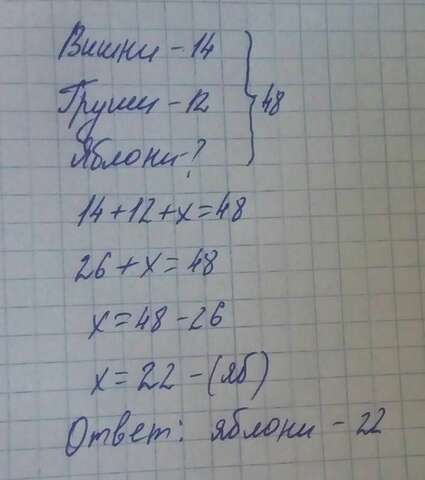 Вишни - 14
Груши - 12 } 48
Яблони - ?
14 + 12 + х = 48
26 + х = 48
х = 48 - 26
х = 22 - (яб)
Ответ: яблони - 22